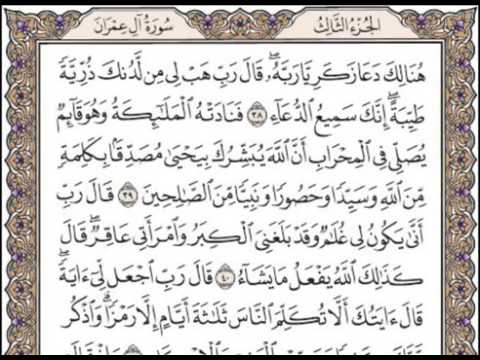 الجزء الثالث
سورة آل عمران
هُنَالِكَ دَعَا زَكَرِيَّا رَبَّهُۥۖ قَالَ رَبِّ هَبْ لِى مِن لَّدُنكَ ذُرِّيَّةً
طَيِّبَةًۖ إِنَّكَ سَمِيعُ الدُّعَآءِ ٣٨ فَنَادَتْهُ الْمَلَٰٓئِكَةُ وَهُوَ قَآئِمٌ
يُصَلِّى فِى الْمِحْرَابِ أَنَّ اللَّهَ يُبَشِّرُكَ بِيَحْيَىٰ مُصَدِّقًۢا بِكَلِمَةٍ
مِّنَ اللَّهِ وَسَيِّدًا وَحَصُورًا وَنَبِيًّا مِّنَ الصَّٰلِحِينَ ٣٩ قَالَ رَبِّ
أَنَّىٰ يَكُونُ لِى غُلَٰمٌ وَقَدْ بَلَغَنِىَ الْكِبَرُ وَامْرَأَتِى عَاقِرٌۖ قَالَ
كَذَٰلِكَ اللَّهُ يَفْعَلُ مَا يَشَآءُ ٤٠ قَالَ رَبِّ اجْعَل لِّىٓ ءَايَةًۖ
قَالَ ءَايَتُكَ أَلَّا تُكَلِّمَ النَّاسَ ثَلَٰثَةَ أَيَّامٍ إِلَّا رَمْزًاۗ وَاذْكُر